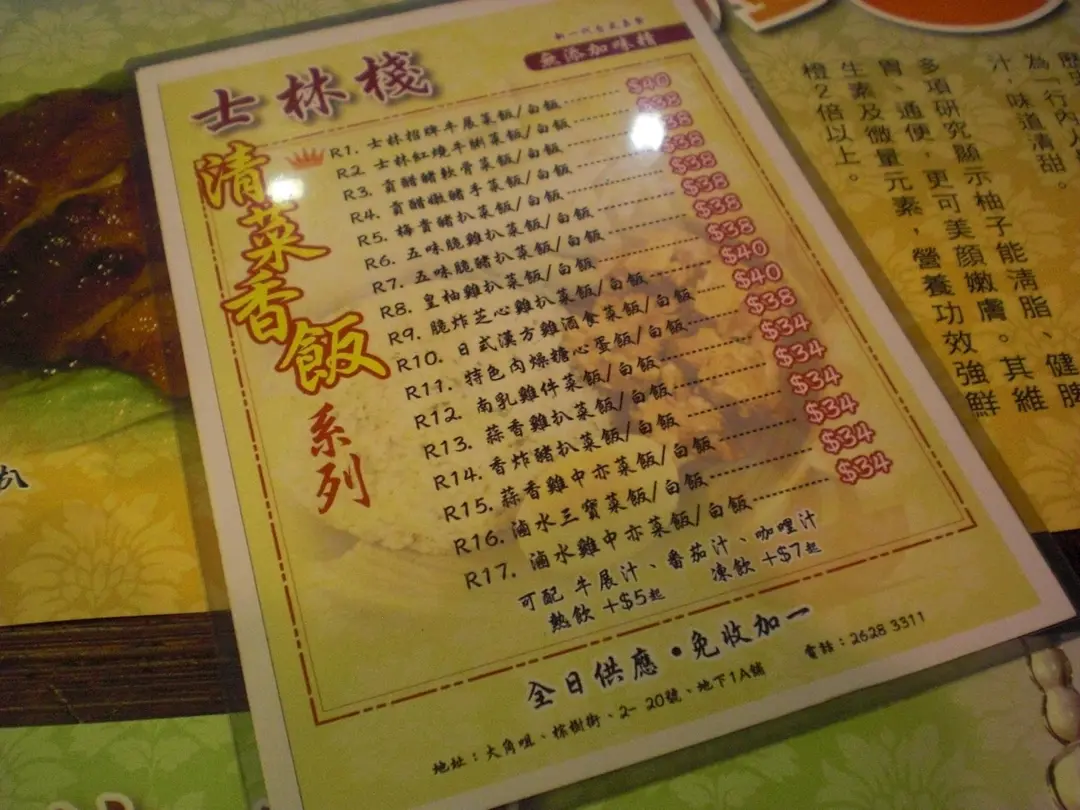 新一代台式美食
無添加味精
士林棧
清菜香飯系列
R1. 士林招牌牛展菜飯/白飯 $40
R2. 士林紅燒牛脷菜飯/白飯 $38
R3. 貢醋豬軟骨菜飯/白飯 $38
R4. 貢醋嫩豬手菜飯/白飯 $38
R5. 梅香豬扒菜飯/白飯 $38
R6. 五味脆雞扒菜飯/白飯 $38
R7. 五味脆豬扒菜飯/白飯 $38
R8. 皇柚雞扒菜飯/白飯 $40
R9. 脆炸芝心雞扒菜飯/白飯 $40
R10. 日式漢方雞酒食菜飯/白飯 $38
R11. 特色肉燥糖心蛋飯/白飯 $34
R12. 南乳雞件菜飯/白飯 $34
R13. 蒜香雞扒菜飯/白飯 $34
R14. 香炸豬扒菜飯/白飯 $34
R15. 蒜香雞中亦菜飯/白飯 $34
R16. 滷水三寶菜飯/白飯 $34
R17. 滷水雞中亦菜飯/白飯
可配 牛展汁、番茄汁、咖哩汁
熱飲 +$5起 凍飲 +$7起
全日供應•免收加一
地址：大角咀、棕樹街、2- 20號、地下1A舖
電話：2628 3311
為「行內人
汁，味道清甜。
多項研究顯示柚子能清脂、健脾
胃、通便，更可美顏嫩膚。其維
生素及微量元素，營養功效強鮮
橙2倍以上。
扒